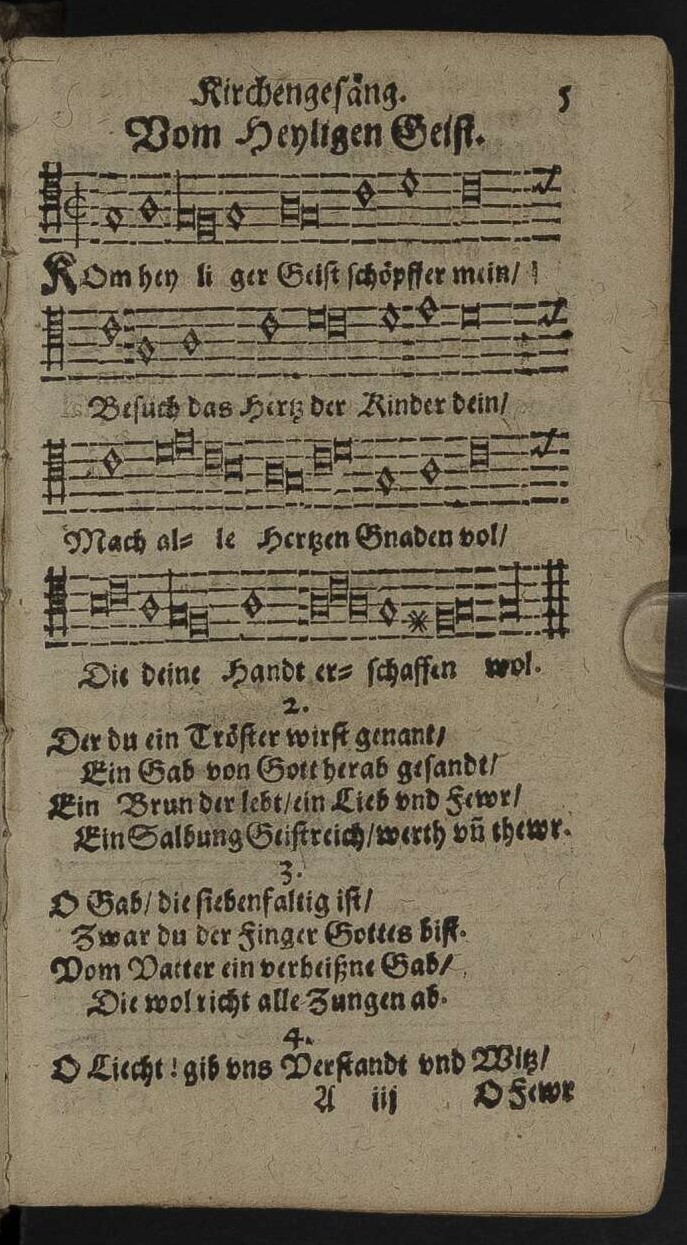 Kirchengesäng. 5
Vom Heyligen Geist.
KOm hey li ger Geist schöpffer mein/
Besuch das Hertz der Kinder dein/
Mach al= le Hertzen Gnaden vol/
Die deine Handt er= schaffen wol.
2.
Der du ein Tröster wirst genant/
Ein Gab von Gott herab gesandt/
Ein Brun der lebt/ein Lieb vnd Fewr/
Ein Salbung Geistreich/werth vn̄ thewr.
3.
O Gab/ die siebenfaltig ist/
Zwar du der Finger Gottes bist.
Vom Vatter ein verheißne Gab/
Die wol richt alle Zungen ab.
4.
O Liecht! gib vns Verstandt vnd Witz/
A iij O Fewr